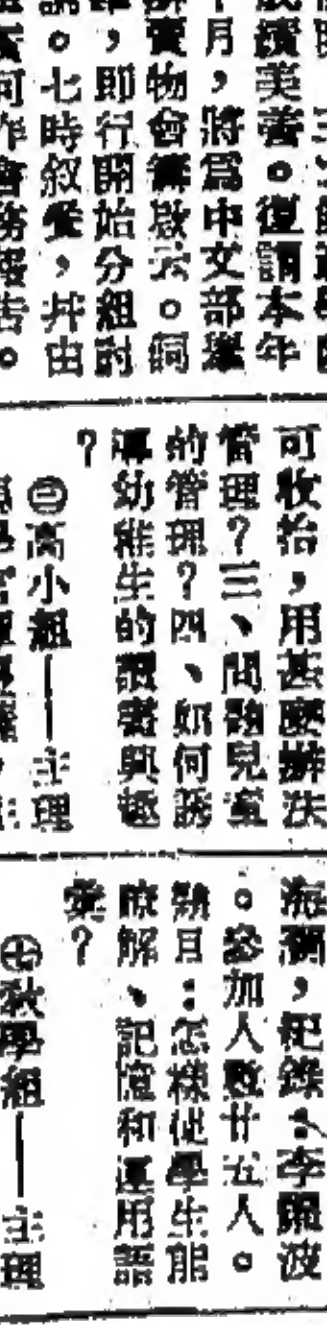 成績美善。復謂本年
十月，將爲中文部舉
辦實物會籌啟云。詞
畢，即行開始分組討
論。七時叙餐，并由
作會務報告。
可收拾，用甚麼辦法
管理？三、問題兒童
的管理？四、如何誘
導幼稚生的讀書興趣
？
㊂高小組——主理
海瀾，紀錄：李 波
。參加人數廿五人。
題目：怎樣使學生能
瞭解、記憶和運用語
彙？
㊉秋學組——主理